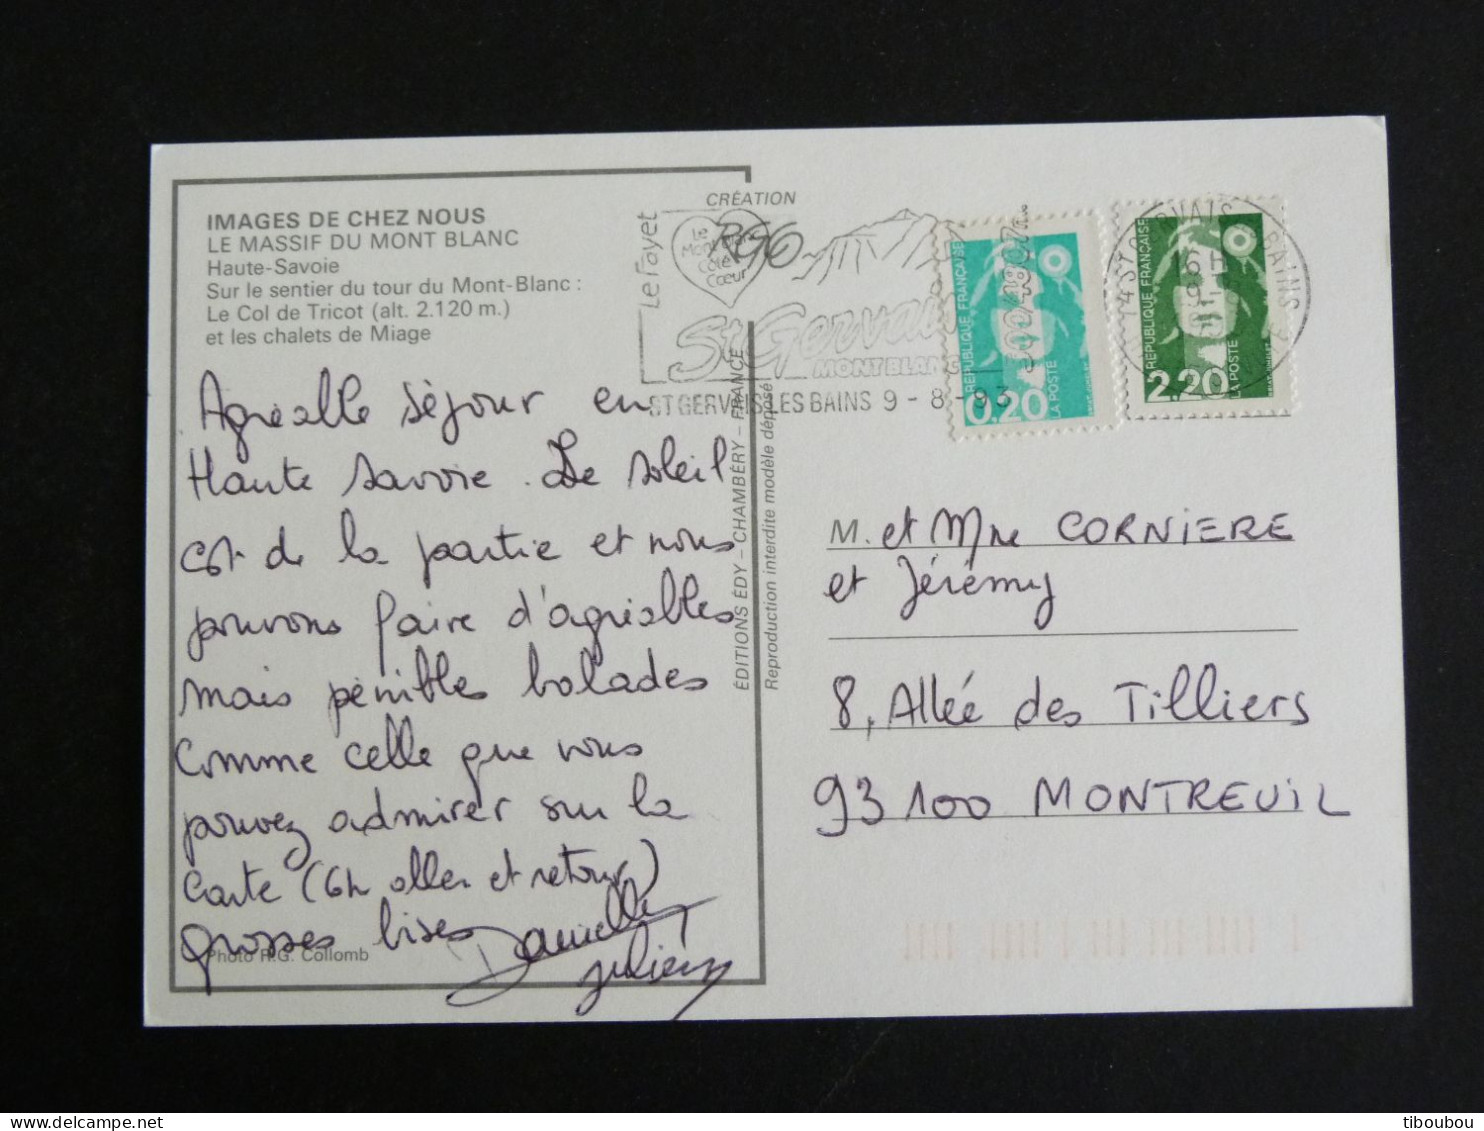 IMAGES DE CHEZ NOUS
LE MASSIF DU MONT BLANC
Haute-Savoie
Sur le sentier du tour du Mont-Blanc :
Le Col de Tricot (alt. 2.120 m.)
et les chalets de Miage
Agréable séjour en
Haute Savoie. Le soleil
est de la partie et nous
pouvons faire d'agréables
mais pénibles balades
comme celle que vous
pouvez admirer sur la
carte (6h aller et retour)
grosses bises Danielle
Julien
Photo R.G. Collomb
ÉDITIONS EDY – CHAMBÉRY – FRANCE
Reproduction interdite modèle déposé
CRÉATION
RG6
Le Fayet
Le
Mont Blanc
Côté
Cœur
St Gervais
MONT BLANC
ST GERVAIS LES BAINS 9 - 8 - 93
RÉPUBLIQUE FRANÇAISE
0,20
LA POSTE
RÉPUBLIQUE FRANÇAISE
2,20
LA POSTE
74 ST GERVAIS LES BAINS
16H
M. et Mme CORNIERE
et Jérémy
8, Allée des Tilliers
93100 MONTREUIL
tiboubou